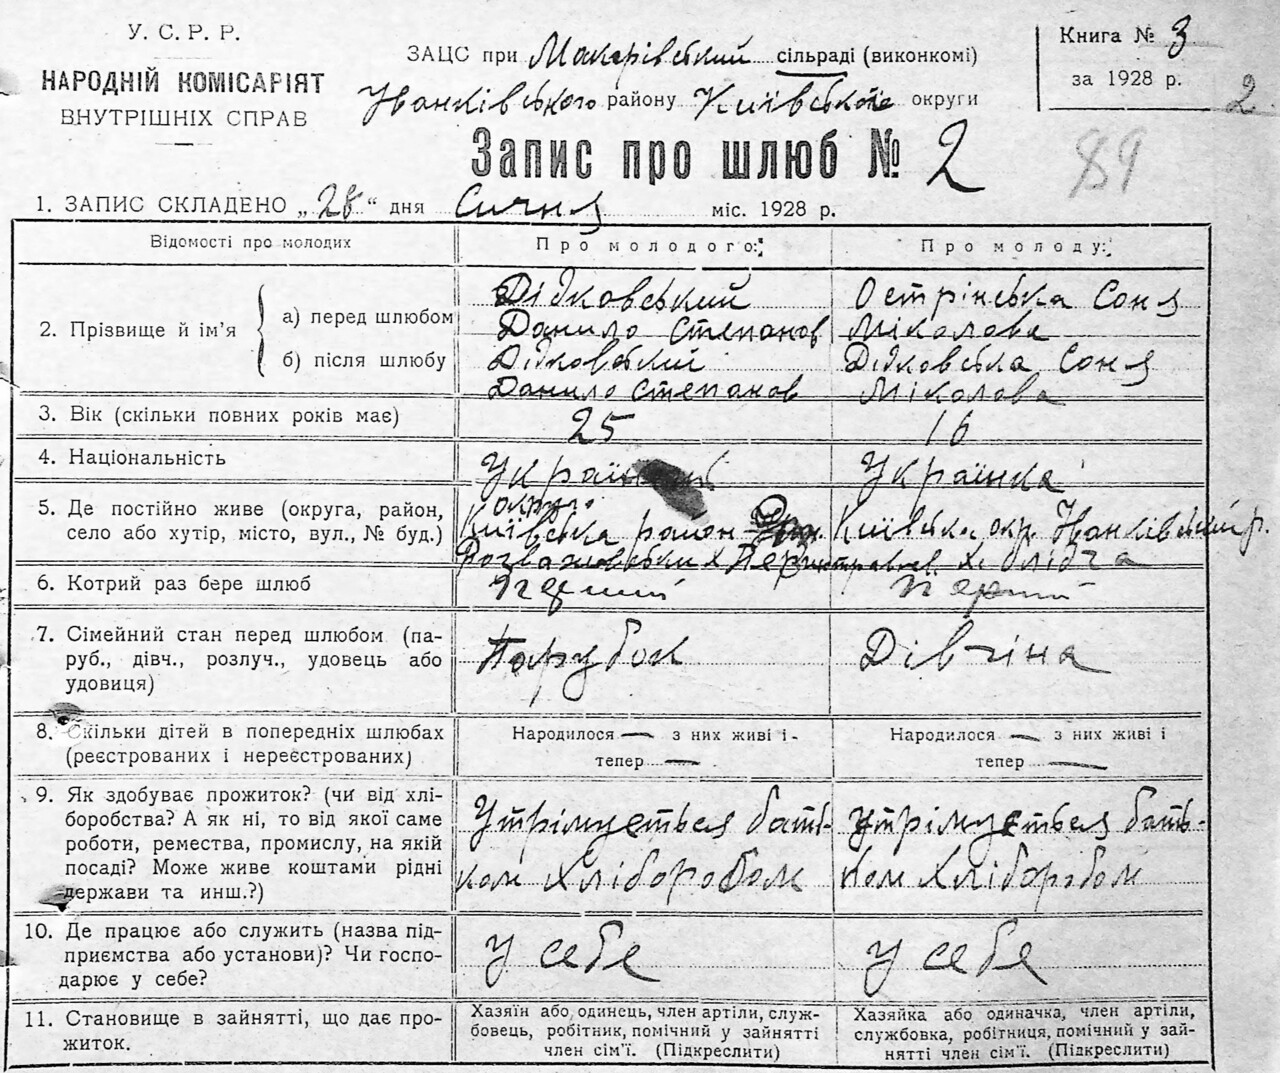 У. С. Р. Р.
НАРОДНІЙ КОМІСАРІЯТ
ВНУТРІШНІХ СПРАВ
ЗАЦС при Макарівський сільраді (виконкомі)
Іванківського району Київської округи
Книга № 3
за 1928 р.
2
Запис про шлюб № 2
89
1. ЗАПИС СКЛАДЕНО „28“ дня Січня міс. 1928 р.
Відомості про молодих
Про молодого:
Про молоду:
2. Прізвище й ім’я
а) перед шлюбом
б) після шлюбу
Дідковський
Данило Степанов
Дідковський
Данило Степанов
Острінська Соня
Міколова
Дідковська Соня
Міколова
3. Вік (скільки повних років має)
25
16
4. Національність
Україн
Українка
5. Де постійно живе (округа, район,
село або хутір, місто, вул., № буд.)
округа
Київська район
Розважовський х
Київська окр. Іванківський р.
х. Блідча
6. Котрий раз бере шлюб
Перший
Перший
7. Сімейний стан перед шлюбом (па-
руб., дівч., розлуч., удовець або
удовиця)
Парубок
Дівчіна
8. Скільки дітей в попередніх шлюбах
(реєстрованих і нереєстрованих)
Народилося — з них живі і -
тепер —
Народилося — з них живі і
тепер —
9. Як здобуває прожиток? (чи від хлі-
боробства? А як ні, то від якої саме
роботи, ремества, промислу, на якій
посаді? Може живе коштами рідні
держави та инш.?)
Утрімуеться бать-
ком Хліборобом
Утрімуеться бать-
ком Хліборобом
10. Де працює або служить (назва під-
приємства або установи)? Чи госпо-
дарює у себе?
У себе
У себе
11. Становище в зайнятті, що дає про-
житок.
Хазяїн або одинець, член артіли, служ-
бовець, робітник, помічний у зайнятті
член сім’ї. (Підкреслити)
Хазяйка або одиначка, член артіли,
службовка, робітниця, помічний у зай-
нятті член сім’ї. (Підкреслити)